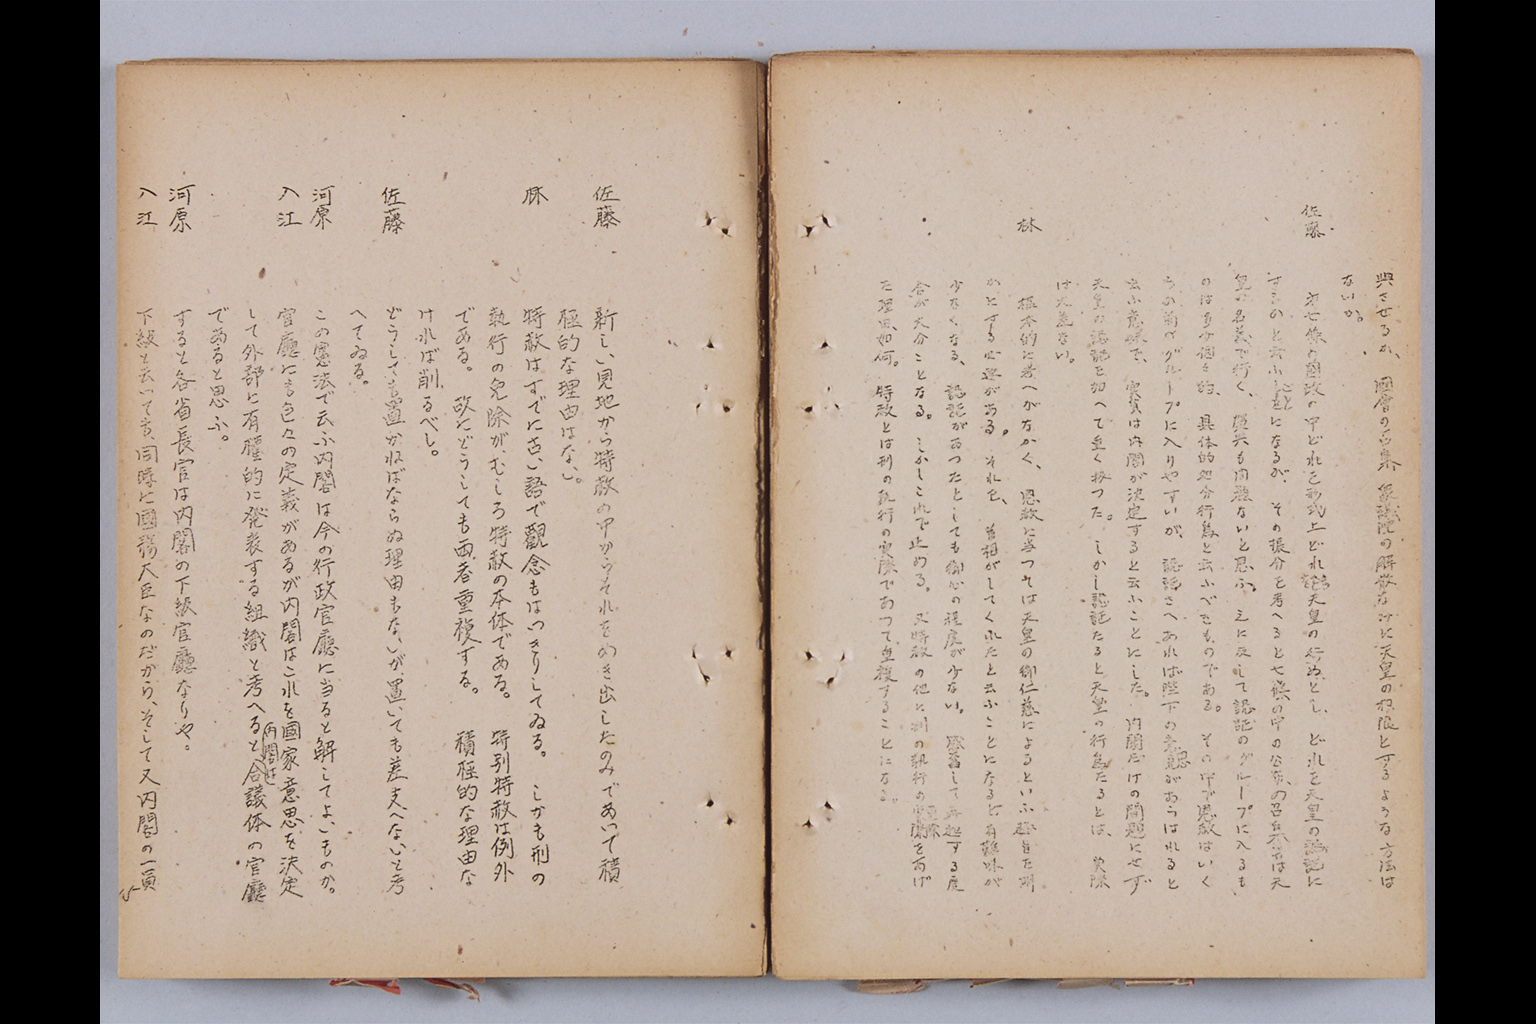 與させるか、國會の召集、衆議院の解散なけに天皇の権限とするような方法は
ないか。
佐藤 第七條の國政の中どれを形式上どれ天皇の行為とし、どれを天皇の認証に
するかと云ふことになるが、その振分を考へると七條の中の公布、召集は天
皇の名義で行く、栄典も問題ないと思ふ。之に反して認証のグループに入るも
のは多分個々的、具体的処分行為と云ふべきものである。その中で恩赦はいく
らか前のグループに入りやすいが、認証さへあれば陛下の意思があらはれると
云ふ意味で、実質は内閣が決定すると云ふことにした。内閣だけの問題にせず
天皇の認証を加へて重く扱つた。しかし認証たると天皇の行為たるとは、実際
は大差ない。
林 根本的に考へがなかく、恩赦に当つては天皇の御仁慈によるといふ趣旨を明
かとする必要がある。それを、首相がしてくれたと云ふことになると有難味が
少なくなる。認証があつたとしても御心の程度が少ない。感奮して再起する度
合が大分ことなる。しかしこれで止める。又特赦の他に刑の執行の免除をあげ
た理由如何。特赦とは刑の執行の免除であつて重複することになる。
佐藤 新しい見地から特赦の中からそれをぬき出したのみであつて積
極的な理由はない。
林 特赦はすでに古い語で觀念もはつきりしてゐる。しかも刑の
執行の免除がむしろ特赦の本体である。特別特赦は例外
である。故にどうしても両者重複する。積極的な理由な
ければ削るべし。
佐藤 どうしても置かねばならぬ理由もないが、置いても差支へないと考
へてゐる。
河原 この憲法で云ふ内閣は今の行政官廳に当ると解してよいものか。
入江 官廳にも色々の定義があるが内閣はこれを國家意思を決定
して外部に有権的に発表する組織と考へると内閣は合議体の官廳
であると思ふ。
河原 すると各省長官は内閣の下級官廳なりや。
入江 下級と云つても、同時に國務大臣なのだから、そして又内閣の一員